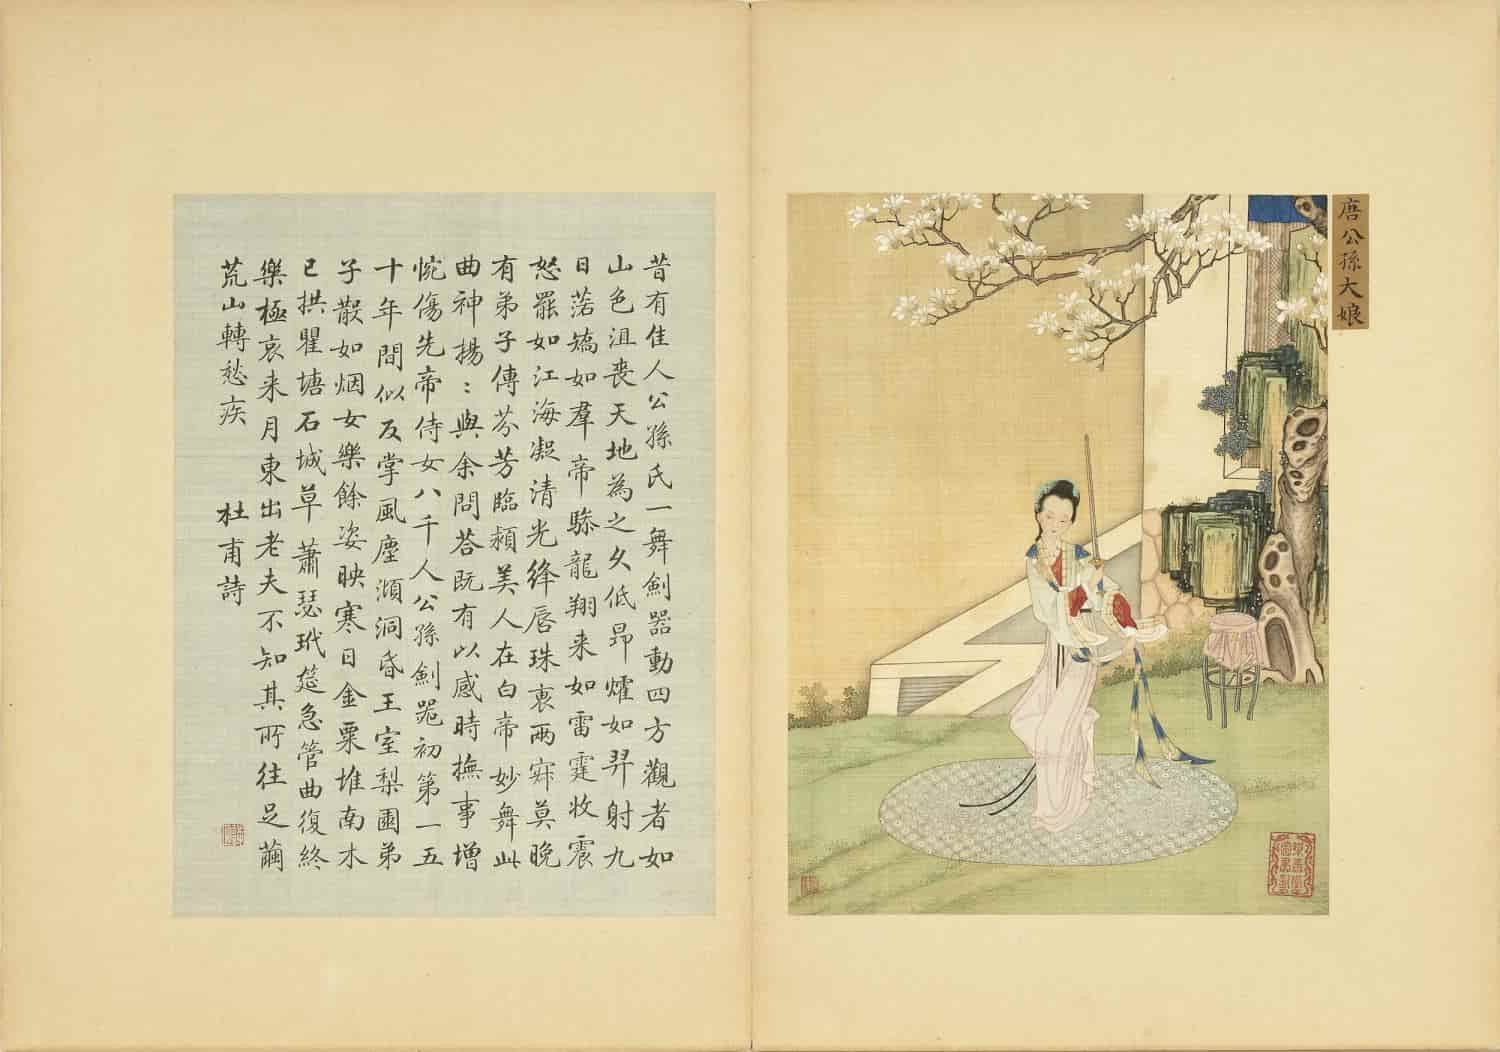 唐公孫大娘
樂善堂圖書記
昔有佳人公孫氏一舞劍器動四方觀者如
山色沮喪天地為之久低昂燿如羿射九
日落矯如羣帝驂龍翔来如雷霆收震
怒罷如江海凝清光絳唇珠褎兩寂莫晚
有弟子傳芬芳臨頴美人在白帝妙舞此
曲神揚〻與余問荅既有以感時撫事增
惋傷先帝侍女八千人公孫劍器初第一五
十年間似反掌風塵澒洞昏王室梨園弟
子散如烟女樂餘姿映寒日金粟堆南木
已拱瞿塘石城草蕭瑟玳筵急管曲復終
樂極哀来月東出老夫不知其所往足繭
荒山轉愁疾
杜甫詩